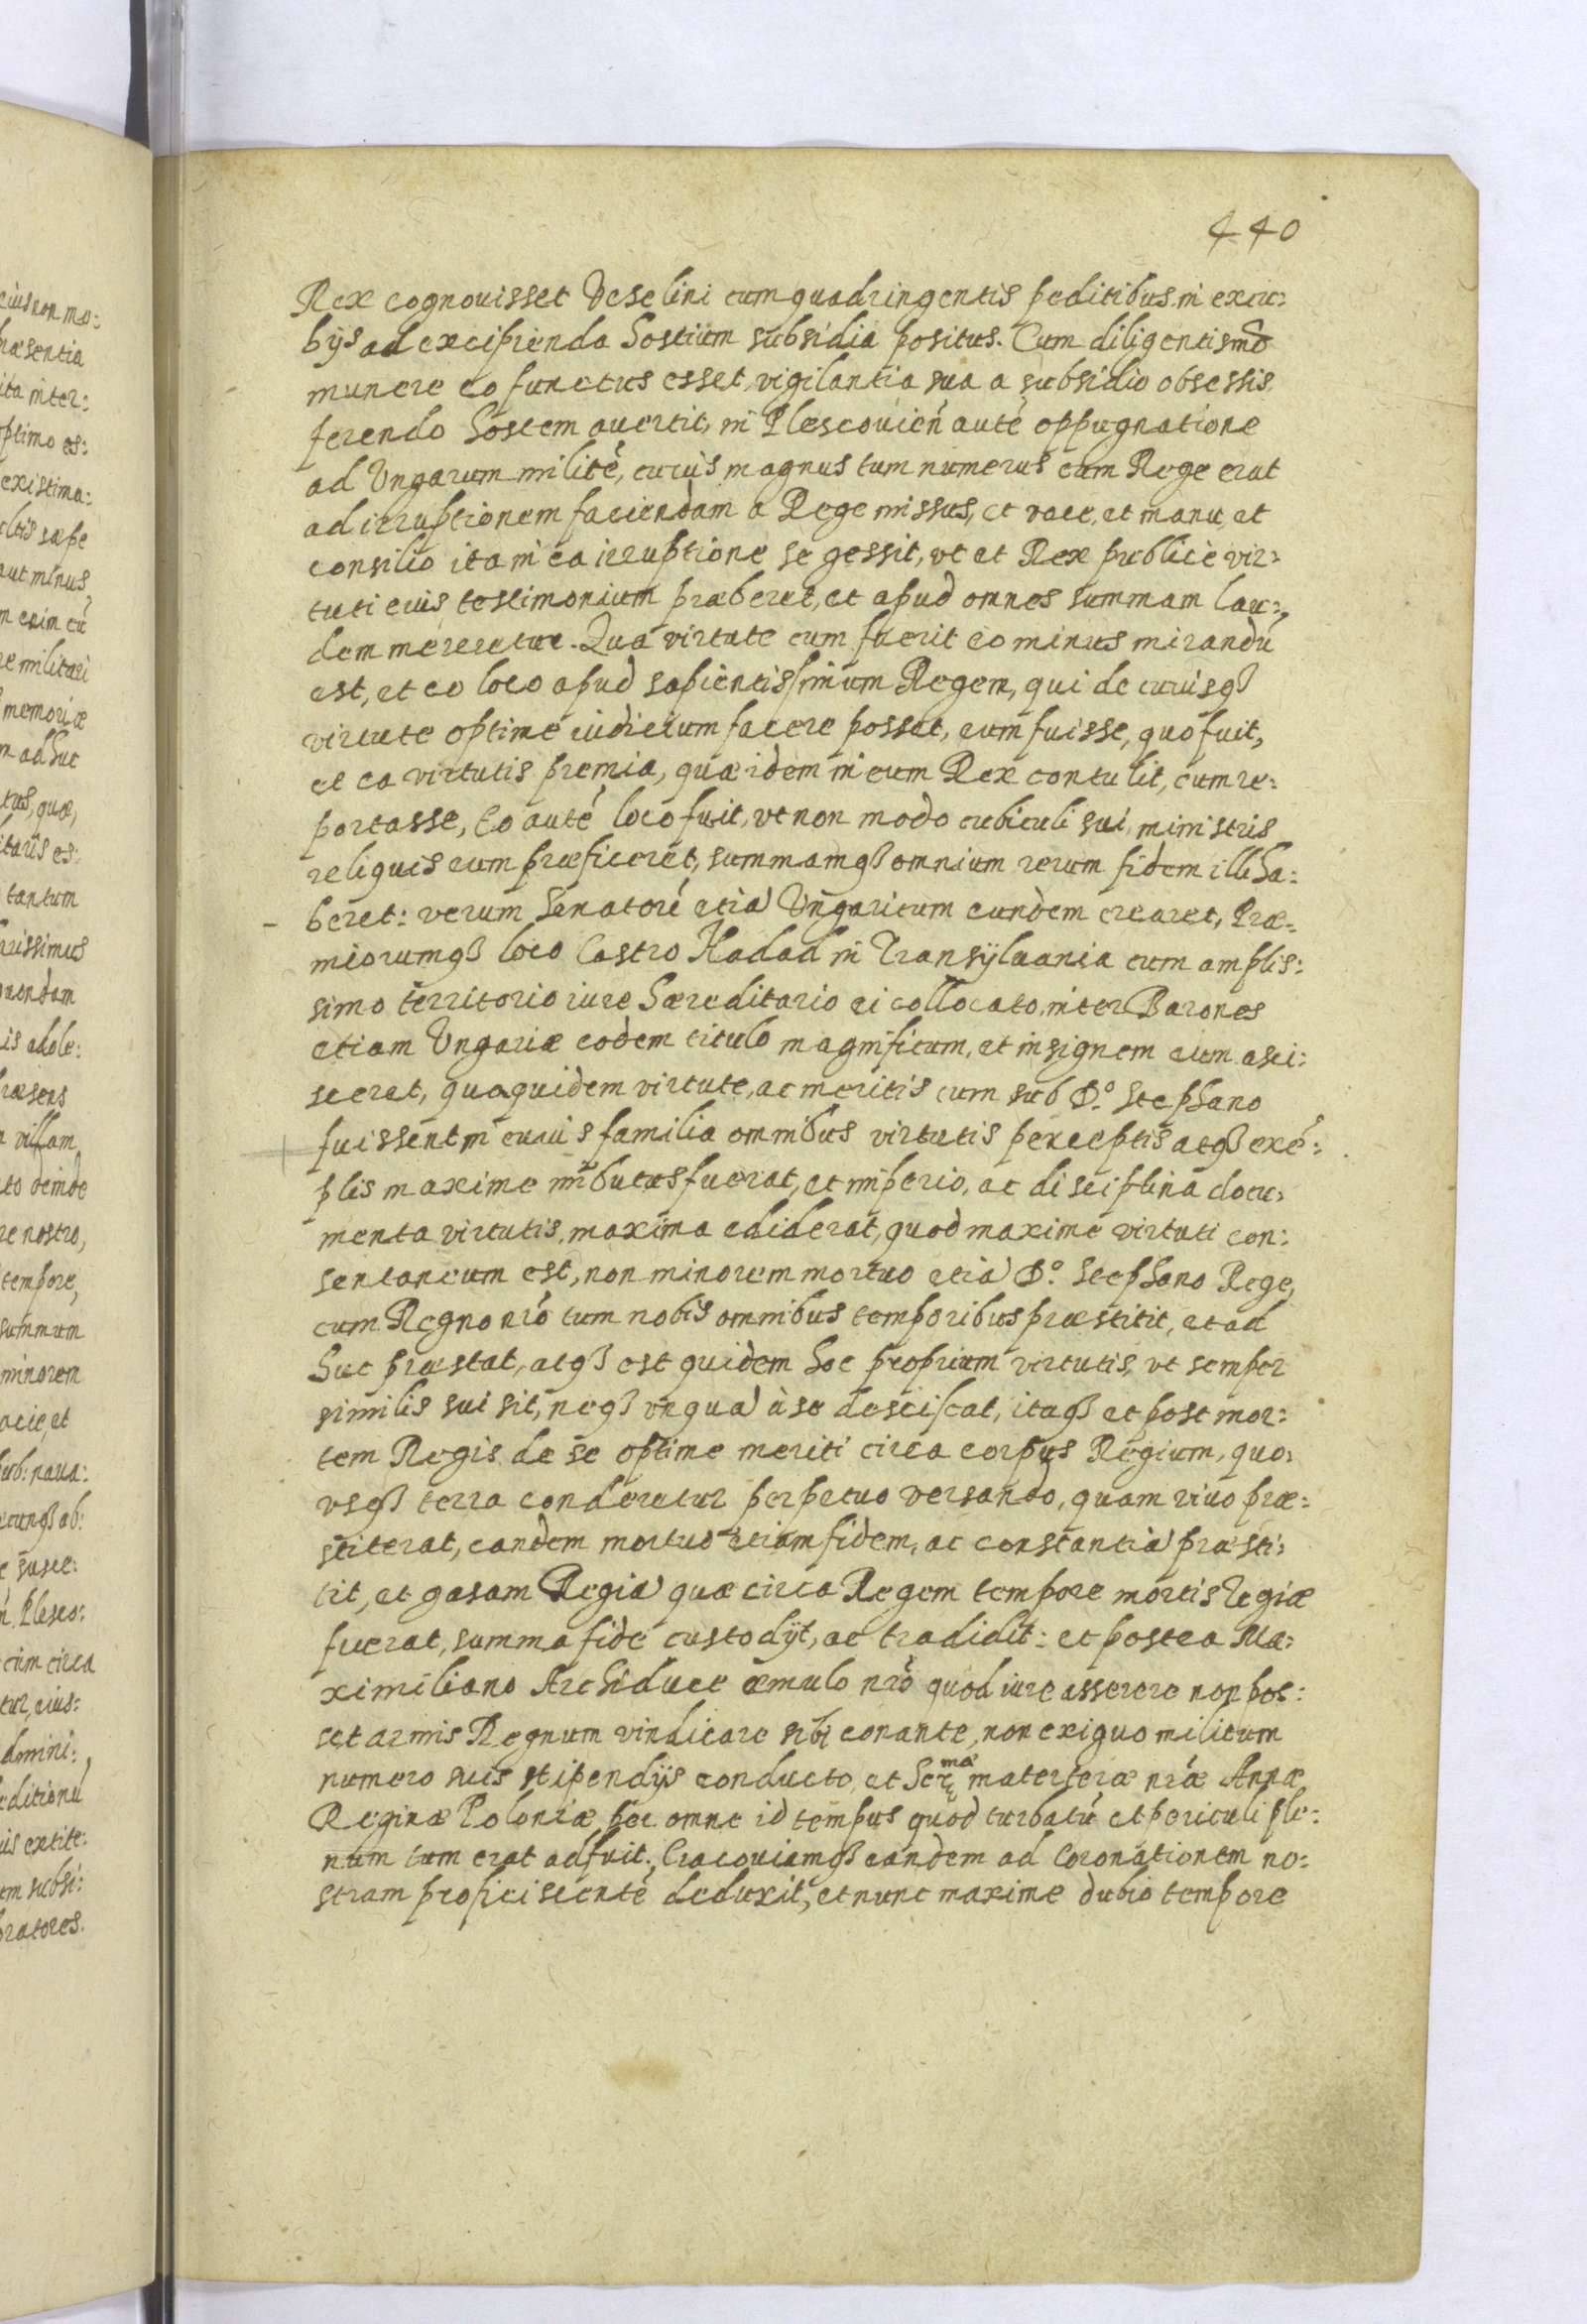 440
Rex cognouisset Veselini cum quadringentis peditibus in excu:
bijs ad excipienda hostium subsidia positus. Cum diligentismo
munere eo functus esset, vigilantia sua a subsidio obsessis
ferendo hostem auertit, in Plescouień auté oppugnatione
ad Vngarum milité, cuius magnus tum numerus cum Rege erat
ad irruptionem faciendam a Rege missus, et voce, et manu et
consilio ita in ea irruptione se gessit, vt et Rex publicè vir:
tuti euis testimonium praeberet, et apud omnes summam lau:
dem mereretur. Qua virtute cum fuerit eo minus mirandũ
est, et eo loco apud sapientissimum Regem, qui de cuiusqȝ
virtute optime iudicium facere posset, eum fuisse, quo fuit,
et ea virtutis premia, quæ idem in eum Rex contulit, eum re:
portasse, Eo auté loco fuit, vt non modo cubiculi sui ministris
reliquis eum præficeret, summamqȝ omnium rerum fidem illi ha:
beret: verum Senatoré etiã Vngaricum eundem crearet, Præ:
miorumqȝ loco Castro Hadad in Transÿluania cum amplis:
simo territorio iure hæreditario ei collocato, inter Barones
etiam Vngariæ eodem titulo magnificum, et insignem eum asci:
sceret, qua quidem virtute, ac meritis cum sub D.º Stephano
fuissent in cuius familia omnibus virtutis perceptis atqȝ exé:
plis maxime imbutus fuerat, et imperio, ac disciplina docu:
menta virtutis maxima ediderat, quod maxime virtuti con:
sentaneum est, non minorem mortuo etiã D.º Stephano Rege,
cum Regno nrõ tum nobis omnibus temporibus præstitit, et ad
huc præstat, atqȝ est quidem hoc proprium virtutis, vt semper
similis sui sit, neqȝ vnquã à se desciscat, itaqȝ et post mor:
tem Regis de se optime meriti circa corpus Regium, quo:
vsqȝ terra conderetur perpetuo versando, quam viuo præ:
stiterat, eandem mortuo etiam fidem, ac constantiã præsti:
tit, et gasam Regiã quæ circa Regem tempore mortis Regiæ
fuerat, summa fide custodÿt, ac tradidit: et postea Ma:
ximiliano Archiduce æmulo nrõ quod iure asserere non pos:
set armis Regnum vindicare sibi conante, non exiguo militum
numero suis stipendijs conducto, et Serᵐᵃᵉ materteræ nrǽ Annæ
Reginæ Poloniæ per omne id tempus quod turbatũ et periculi ple:
num tum erat adfuit. Cracouiamqȝ eandem ad Coronationem no:
stram proficiscenté deduxit, et nunc maxime dubio tempore